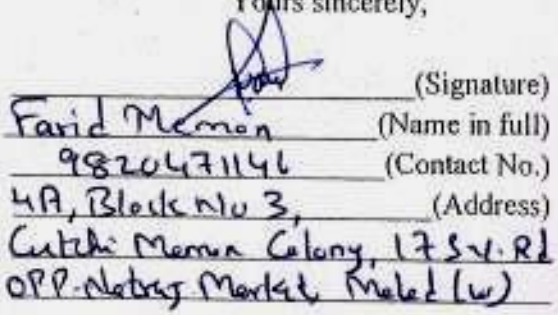 Yours sincerely,
(Signature)
Farid Memon (Name in full)
9820471146 (Contact No.)
4A, Block No 3, (Address)
Cutchi Memon Colony, 17 S.V. Rd
OPP. Natraj Market Malad (W)